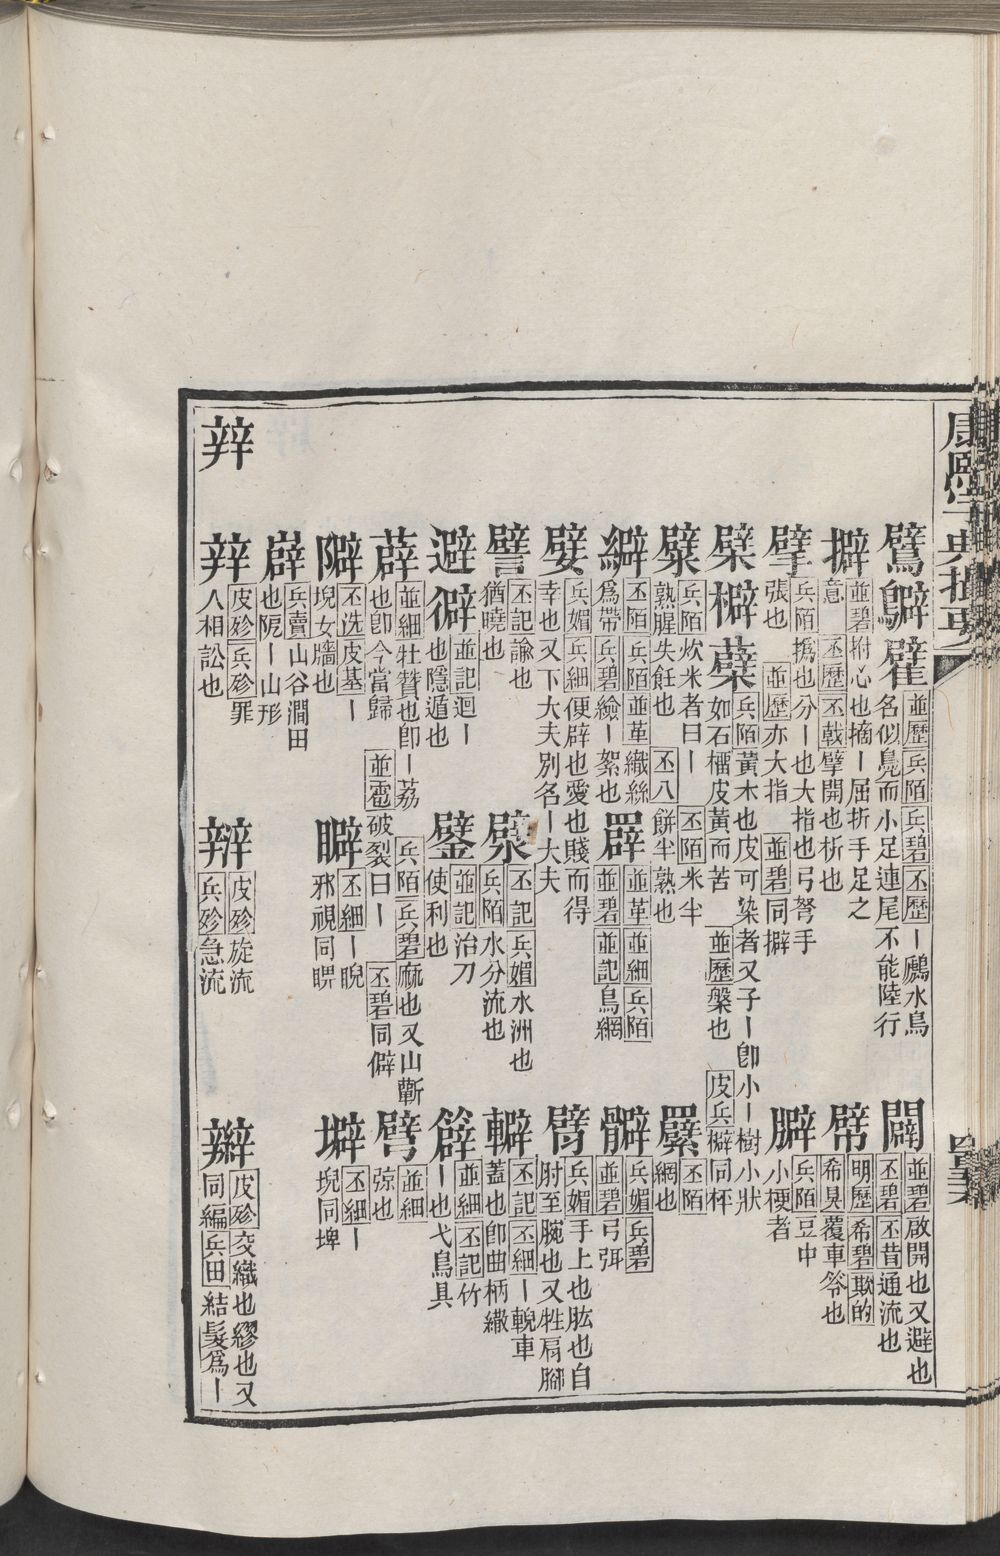 康熙字典撮要
鷿鸊䌟 並歷 兵陌 兵碧 丕歷 ｜鷉水鳥名似鳧而小足連尾不能陸行
闢 並碧 丕碧 丕昔 啟開也又避也通流也
擗 並碧 拊心也擿｜屈折手足之意 丕歷 丕戟 擘開也析也
幦 明歷 希碧 欺的 希具 覆車笭也
擘 兵陌 撝也分｜也大指也弓弩手張也 並歷 亦大指 並碧 同擗
䑀 兵陌 豆中小梗者
檗檘蘗 兵陌 黃木也皮可染者又子｜卽小｜樹小狀如石橊皮黃而苦 並歷 槃也 皮兵 檘同枰
糪 兵陌 炊米者曰｜ 丕陌 米半熟腥失飪也 丕八 餅半熟也
䌟 丕陌 網也
繴 丕陌 兵陌 並革 織絲爲帶 兵碧 繪｜絮也
罼 並革 並細 兵陌 並碧 並記 鳥網
髀 兵媚 兵碧 並碧 弓弭
嬖 兵媚 兵細 便辟也愛也賤而得幸也又下大夫別名｜大夫
臂 兵媚 手上也肱也自肘至腕也又牲肩腳
譬 丕記 諭也猶曉也
檗 丕記 兵媚 水洲也 兵陌 水分流也
䡟 丕記 丕細 ｜輗車蓋也卽曲柄繖
避僻 並記 迴｜也隱遁也
鐾 並記 治刀使利也
簲 並細 丕記 竹｜也弋鳥具
薜 並細 牡贊也卽｜荔也卽今當歸 並雹 破裂曰｜ 兵陌 兵碧 麻也又山蘄 丕碧 同僻
彆 並細 弶也
隦 丕洗 皮基 ｜堄女牆也
䁹 丕細 ｜睨邪視同睥
壀 丕細 ｜堄同埤
薜 兵賣 山谷澗田也阨｜山形
辡
辡 皮殄 兵殄 罪人相訟也
辬 皮殄 旋流 兵殄 急流
辮 皮殄 交織也繆也又同編 兵田 結髮爲｜